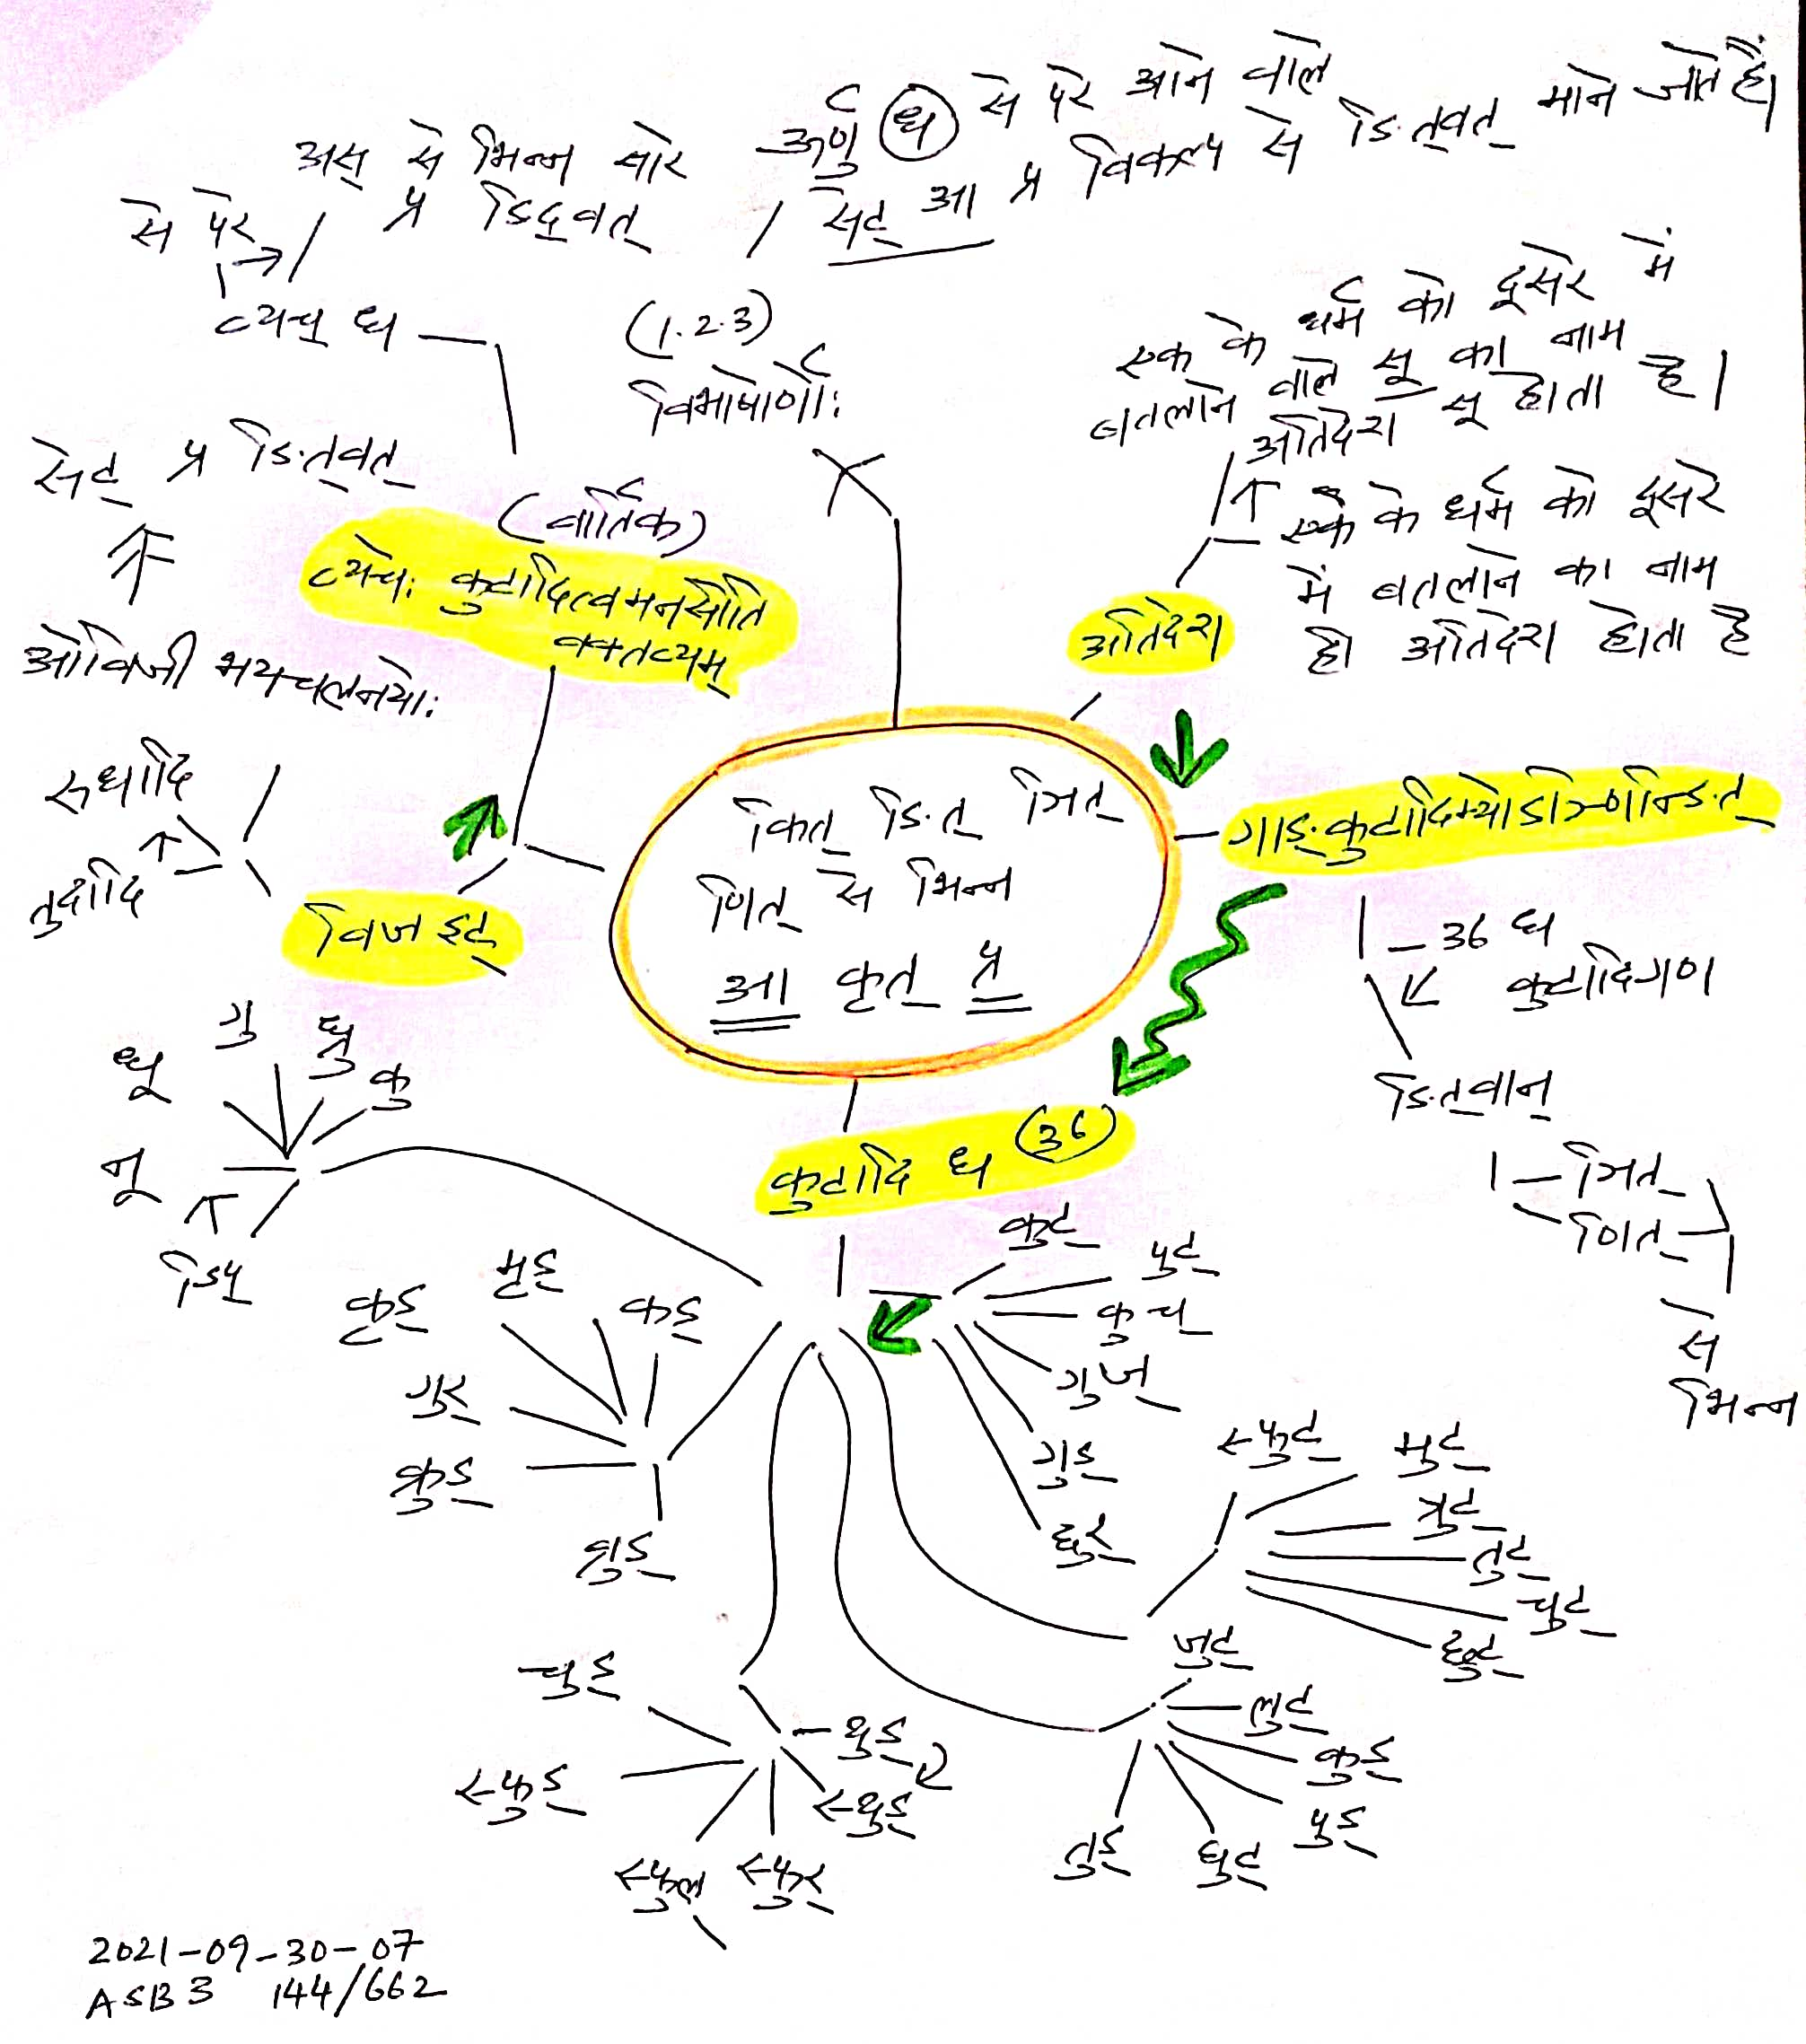 अस् से भिन्न और
से परे / प्र ङिद्वत् /
ऊर्णु ध से परे आने वाले
सेट् आ प्र विकल्प से ङित्वत् माने जाते हैं।
व्यच् ध
(1.2.3)
विभाषोर्णोः
एक के धर्म को दूसरे में
बतलाने वाले सू का नाम
अतिदेश सू होता है।
एक के धर्म को दूसरे
में बतलाने का नाम
ही अतिदेश होता है
अतिदेश
सेट् प्र ङित्वत्
(वार्तिक)
व्यचेः कुटादित्वमनसीति
वक्तव्यम्
ओविजी भयचलनयोः
रुधादि
तुदादि
विज इट्
कित् ङित् ञित्
णित् से भिन्न
आ कृत् प्र
गाङ्कुटादिभ्योऽञ्णिन्ङित्
36 ध
कुटादिगण
ङित्वान्
ञित्
णित्
से
भिन्न
गु
ध्रु
धू
कु
नू
डिप्
कुटादि ध (36)
कुट्
पुट्
कुच्
गुज्
गुड्
छुर्
कृड्
मृड्
कड्
गुर्
क्रुड्
थुड्
स्फुट्
मुट्
त्रुट्
तुट्
चुट्
छुट्
जुट्
लुट्
कुड्
पुड्
घुट्
तुड्
चुड्
थुड्
स्थुड्
स्फुड्
स्फुर्
स्फुल्
2021-09-30-07
ASB3 144/662